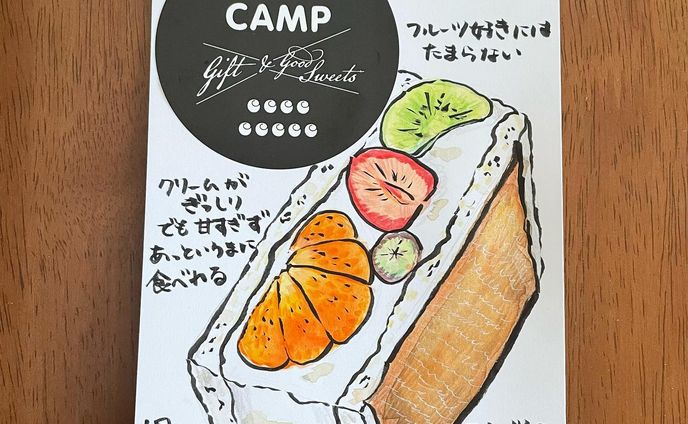 CAMP
Gift & Good
Sweets
フルーツ好きには
たまらない
クリームが
ぎっしり
でも甘すぎず
あっというまに
食べれる